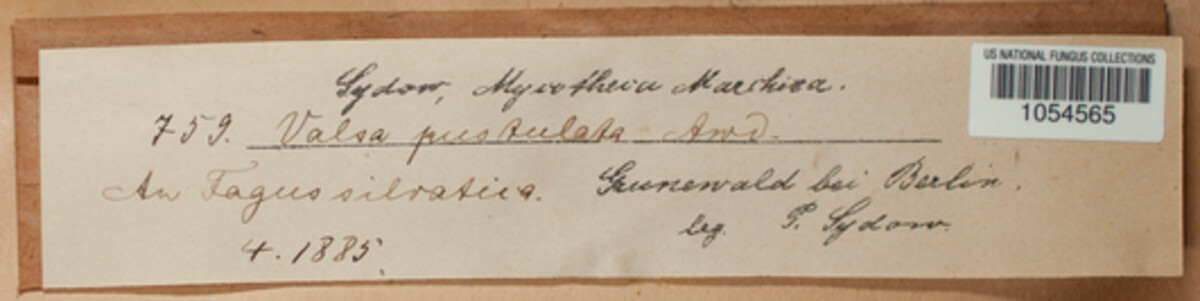 US NATIONAL FUNGUS COLLECTIONS
1054565
Sydow, Mycotheca Marchica.
759. Valsa pustulata Awd.
An Fagus silvatica. Grunewald bei Berlin.
4. 1885. leg. P. Sydow.